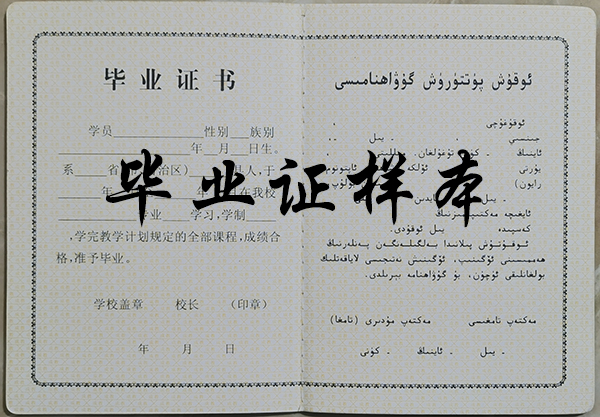 毕业证书
学员 性别 族别
年 月 日生。
系 省 治区） 县人，于
年 日在我校
专业 学习，学制
，学完教学计划规定的全部课程，成绩合
格，准予毕业。
学校盖章 校长 （印章）
年 月 日
毕业证样本
ئوقۇش پۈتتۈرۈش گۇۋاھنامىسى
ئوقۇغۇچى ،
جىنسىسى ، يىل .
ئاينىڭ كۈنى تۇغۇلغان.
يۇرتى ئۆلكە ئاپتونوم
رايون)
يىل
كەسپىدە، يىل ئوقۇدى.
ئوقۇتۇش پىلانىدا بەلگىلەنگەن پەنلەرنىڭ
ھەممىسىنى ئۆگىنىپ، ئۆگىنىش نەتىجىسى لاياقەتلىك
بولغانلىقى ئۈچۈن، بۇ گۇۋاھنامە بېرىلدى.
مەكتەپ تامغىسى مەكتەپ مۇدىرى (تامغا)
. يىل . ئاينىڭ . كۈنى